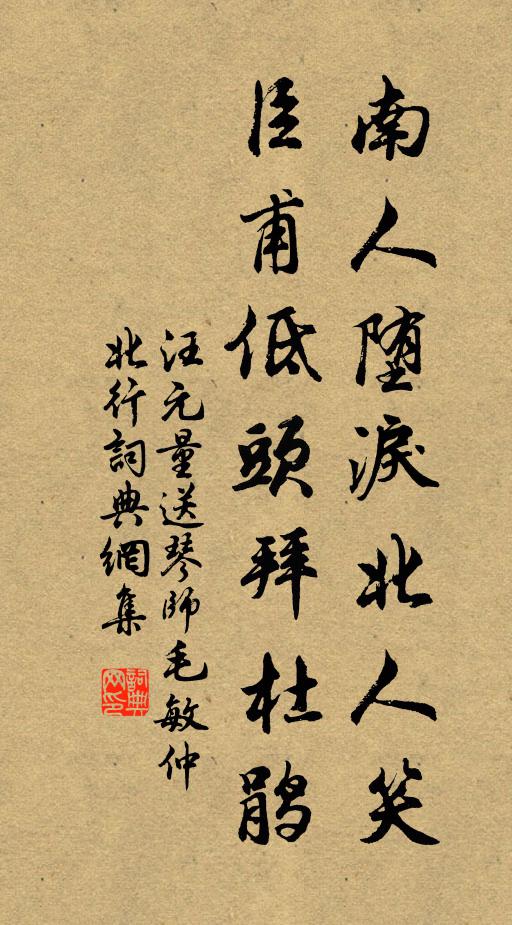 南人堕淚北人笑
臣甫低頭拜杜鹃
汪元量送琴師毛敏仲
北行詞典網集
詞典网印